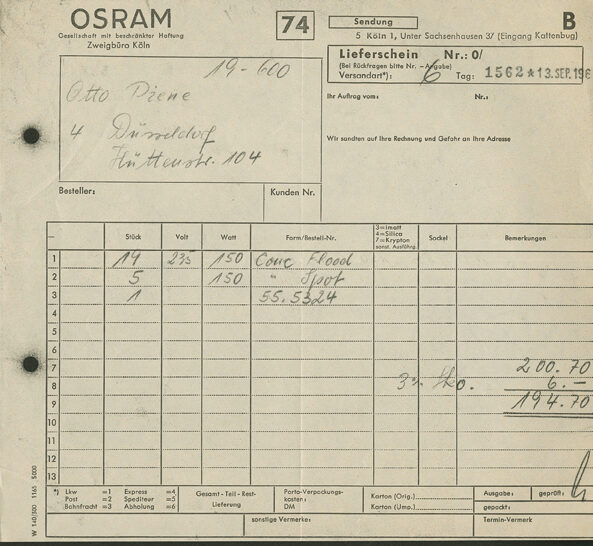 OSRAM
Gesellschaft mit beschränkter Haftung
Zweigbüro Köln
74
Sendung
B
5 Köln 1, Unter Sachsenhausen 37 (Eingang Kattenbug)
Lieferschein Nr.: 0/
(Bei Rückfragen bitte Nr. – Angabe)
Versandart*): 6 Tag: 1562 * 13. SEP. 196
19-600
Otto Piene
4 Düsseldorf
Hüttenstr. 104
Ihr Auftrag vom: Nr.:
Wir sandten auf Ihre Rechnung und Gefahr an Ihre Adresse
Besteller: Kunden Nr.
Stück Volt Watt Form/Bestell-Nr. 3=imatt 4=Silica 7=Krypton sonst. Ausführg. Sockel Bemerkungen
1 19 235 150 Conc Flood
2 5 150 " Spot
3 1 55.5324
4
5
6
7 200.70
8 3% Sko. 6.–
9 194.70
10
11
12
13
*) Lkw =1 Express =4
Post =2 Spediteur =5
Bahnfracht =3 Abholung =6
Gesamt - Teil - Rest-
Lieferung
Porto-Verpackungs-
kosten:
DM
Karton (Orig.)
Karton (Ump.)
Ausgabe: geprüft:
gepackt:
sonstige Vermerke: Termin-Vermerk
W 140/500 1165 5000